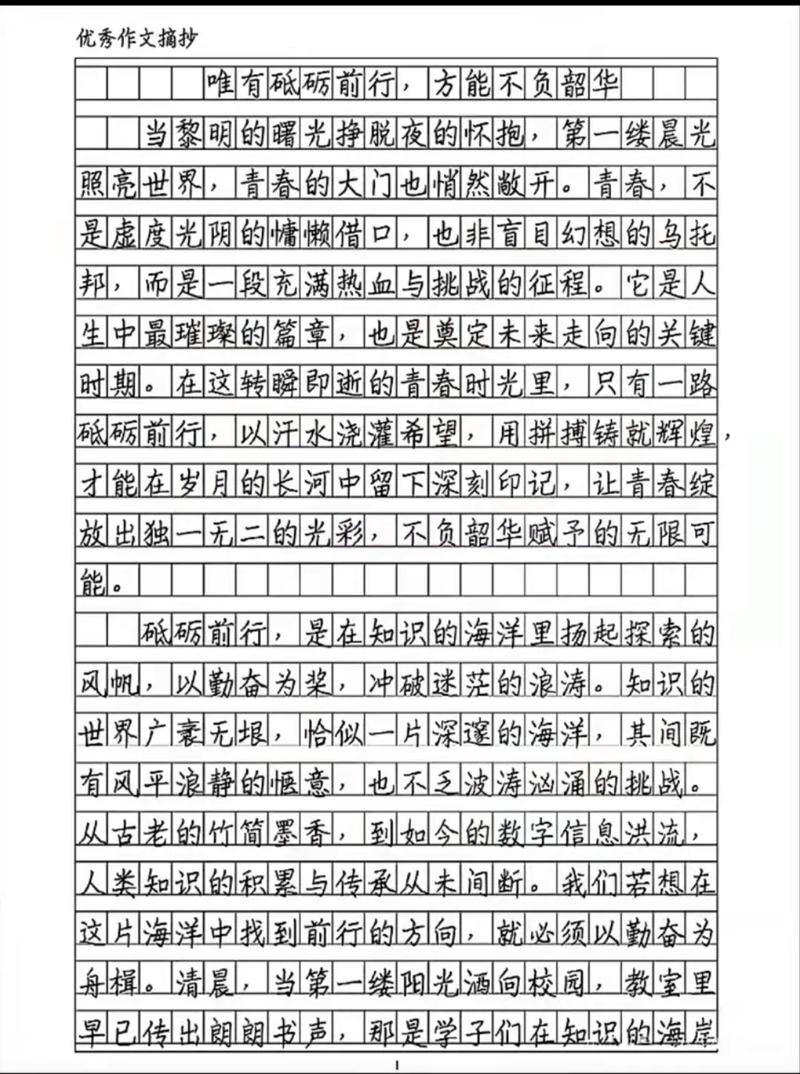 优秀作文摘抄
唯有砥砺前行，方能不负韶华
当黎明的曙光挣脱夜的怀抱，第一缕晨光
照亮世界，青春的大门也悄然敞开。青春，不
是虚度光阴的慵懒借口，也非盲目幻想的乌托
邦，而是一段充满热血与挑战的征程。它是人
生中最璀璨的篇章，也是奠定未来走向的关键
时期。在这转瞬即逝的青春时光里，只有一路
砥砺前行，以汗水浇灌希望，用拼搏铸就辉煌，
才能在岁月的长河中留下深刻印记，让青春绽
放出独一无二的光彩，不负韶华赋予的无限可
能。
砥砺前行，是在知识的海洋里扬起探索的
风帆，以勤奋为桨，冲破迷茫的浪涛。知识的
世界广袤无垠，恰似一片深邃的海洋，其间既
有风平浪静的惬意，也不乏波涛汹涌的挑战。
从古老的竹简墨香，到如今的数字信息洪流，
人类知识的积累与传承从未间断。我们若想在
这片海洋中找到前行的方向，就必须以勤奋为
舟楫。清晨，当第一缕阳光洒向校园，教室里
早已传出朗朗书声，那是学子们在知识的海岸
1